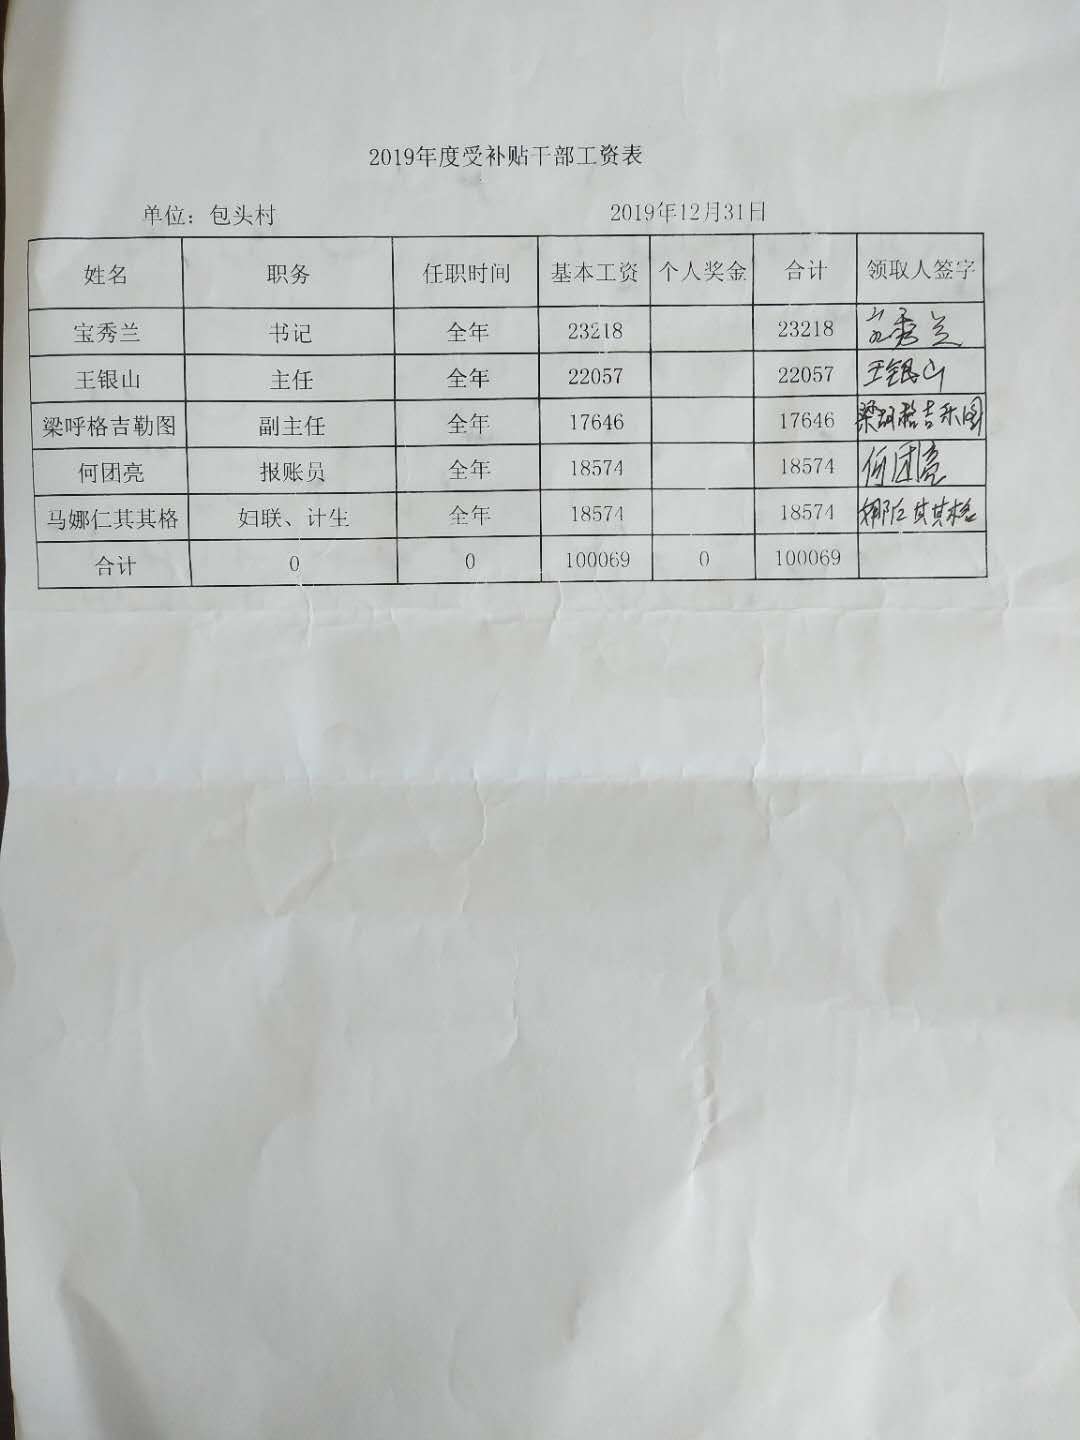 2019年度受补贴干部工资表
单位：包头村 2019年12月31日
姓名 职务 任职时间 基本工资 个人奖金 合计 领取人签字
宝秀兰 书记 全年 23218 23218 宝秀兰
王银山 主任 全年 22057 22057 王银山
梁呼格吉勒图 副主任 全年 17646 17646 梁呼格吉乐图
何团亮 报账员 全年 18574 18574 何团亮
马娜仁其其格 妇联、计生 全年 18574 18574 娜仁其其格
合计 0 0 100069 0 100069